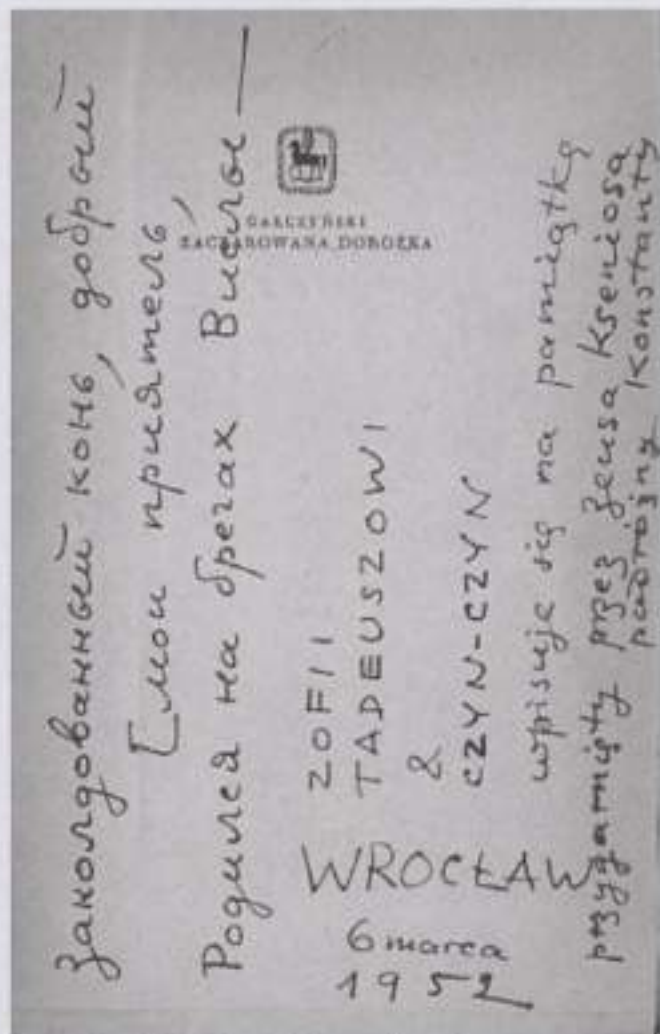 Заколдованный конь, добрый
[мой приятель,
Родился на брегах Вислы —
GAŁCZYŃSKI
ZACZAROWANA DOROŻKA
ZOFII
TADEUSZOWI
&
CZYN-CZYN
wpisuje się na pamiątkę
przygarnięty przez Zeusa Kseniosa
podróżny Konstanty
WROCŁAW
6 marca
1952